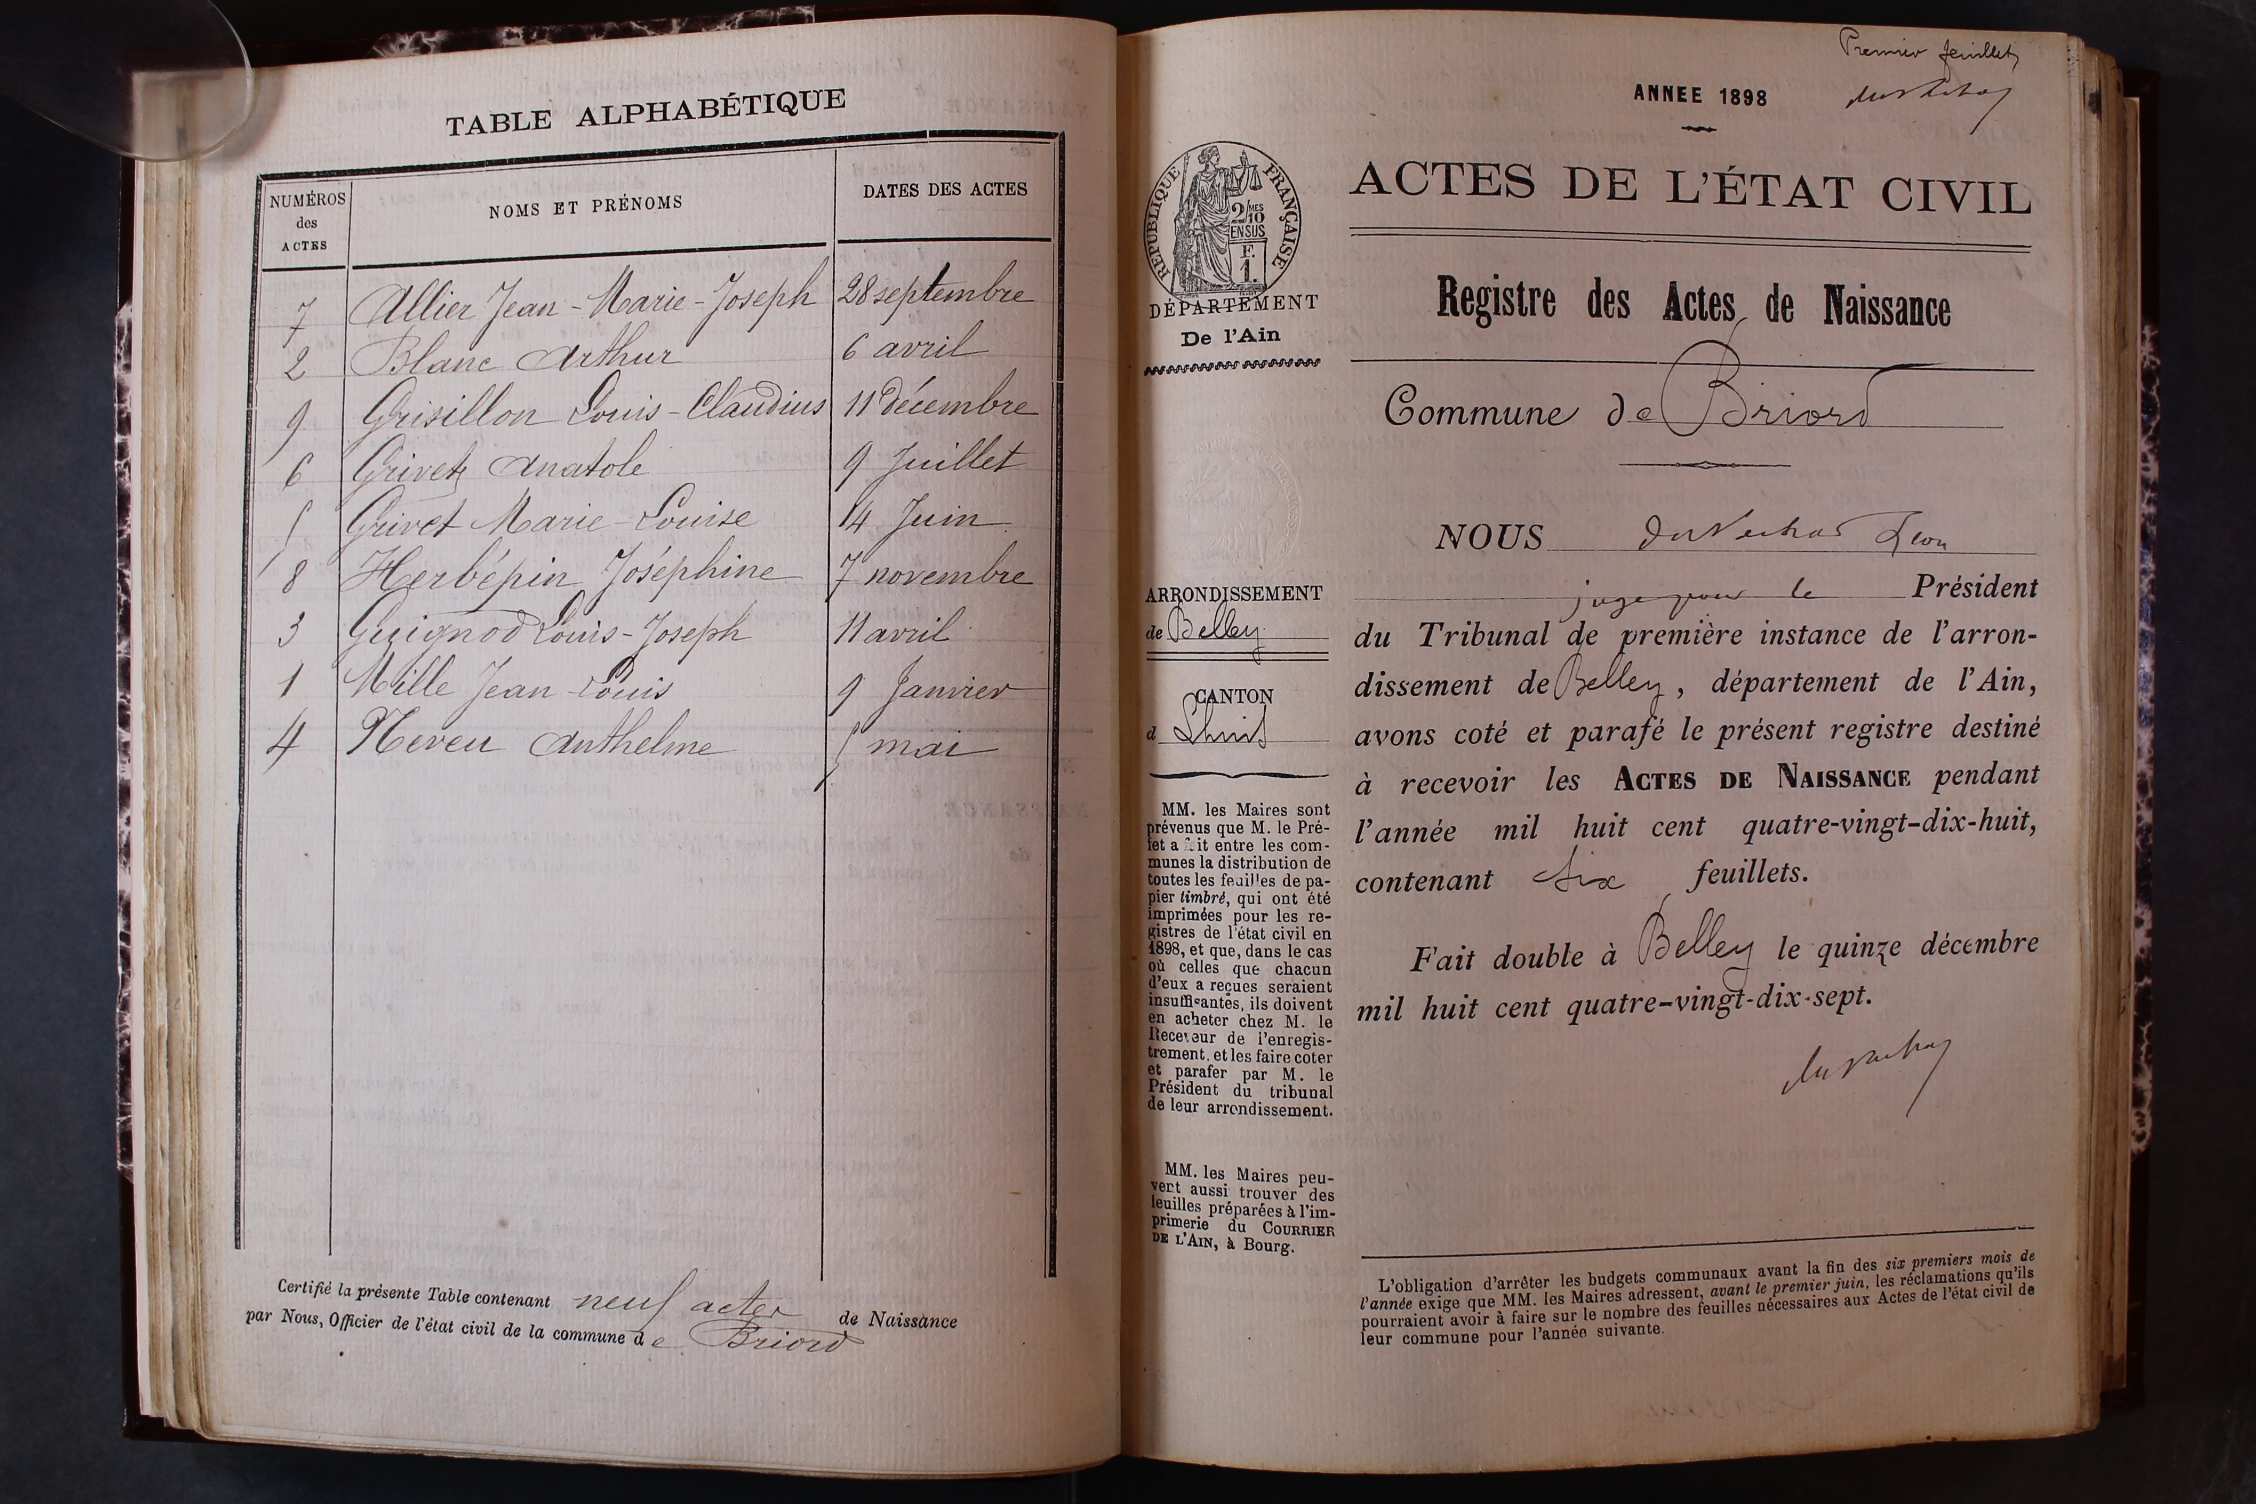 TABLE ALPHABÉTIQUE
NUMÉROS des ACTES NOMS ET PRÉNOMS DATES DES ACTES
7 Allier Jean-Marie-Joseph 28 septembre
2 Blanc Arthur 6 avril
9 Grisillon Louis-Claudius 11 décembre
6 Grivet Anatole 9 Juillet
5 Grivet Marie-Louise 14 Juin
8 Herbépin Joséphine 7 novembre
3 Guignod Louis-Joseph 11 avril
1 Mille Jean-Louis 9 Janvier
4 Neveu Anthelme 5 mai
Certifié la présente Table contenant neuf actes de Naissance
par Nous, Officier de l'état civil de la commune de Briord
Premier feuillet
ANNEE 1898
ACTES DE L'ÉTAT CIVIL
RÉPUBLIQUE FRANÇAISE
2/MES
10
EN SUS
F.
1.
DÉPARTEMENT
De l'Ain
Registre des Actes de Naissance
Commune de Briord
NOUS Léon
juge pour le Président
du Tribunal de première instance de l'arron-
dissement de Belley, département de l'Ain,
avons coté et parafé le présent registre destiné
à recevoir les ACTES DE NAISSANCE pendant
l'année mil huit cent quatre-vingt-dix-huit,
contenant six feuillets.
Fait double à Belley le quinze décembre
mil huit cent quatre-vingt-dix-sept.
ARRONDISSEMENT
de Belley
CANTON
d Lhuis
MM. les Maires sont
prévenus que M. le Pré-
fet a fait entre les com-
munes la distribution de
toutes les feuilles de pa-
pier timbré, qui ont été
imprimées pour les re-
gistres de l'état civil en
1898, et que, dans le cas
où celles que chacun
d'eux a reçues seraient
insuffisantes, ils doivent
en acheter chez M. le
Receveur de l'enregis-
trement, et les faire coter
et parafer par M. le
Président du tribunal
de leur arrondissement.
MM. les Maires peu-
vent aussi trouver des
feuilles préparées à l'im-
primerie du COURRIER
DE L'AIN, à Bourg.
L'obligation d'arrêter les budgets communaux avant la fin des six premiers mois de
l'année exige que MM. les Maires adressent, avant le premier juin, les réclamations qu'ils
pourraient avoir à faire sur le nombre des feuilles nécessaires aux Actes de l'état civil de
leur commune pour l'année suivante.